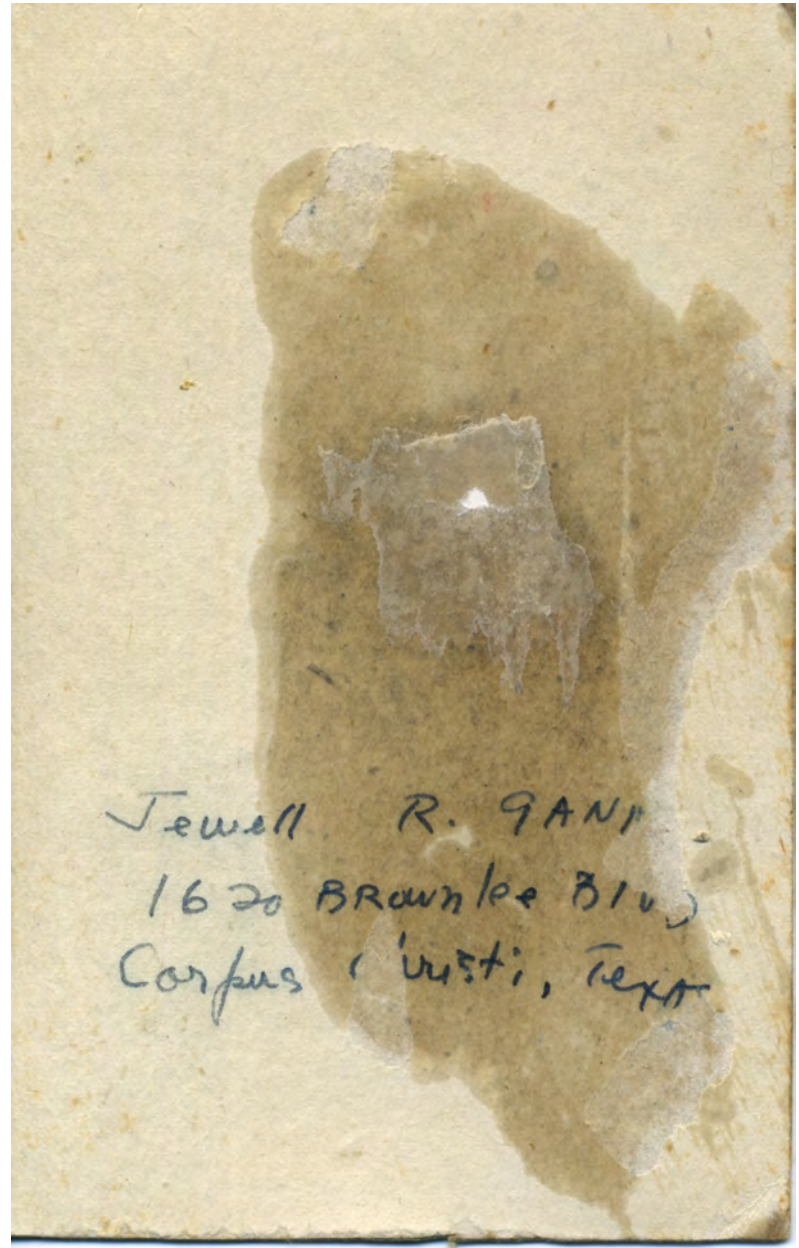 Jewell R.
1620 Brownlee Blvd
Corpus Christi, Texa